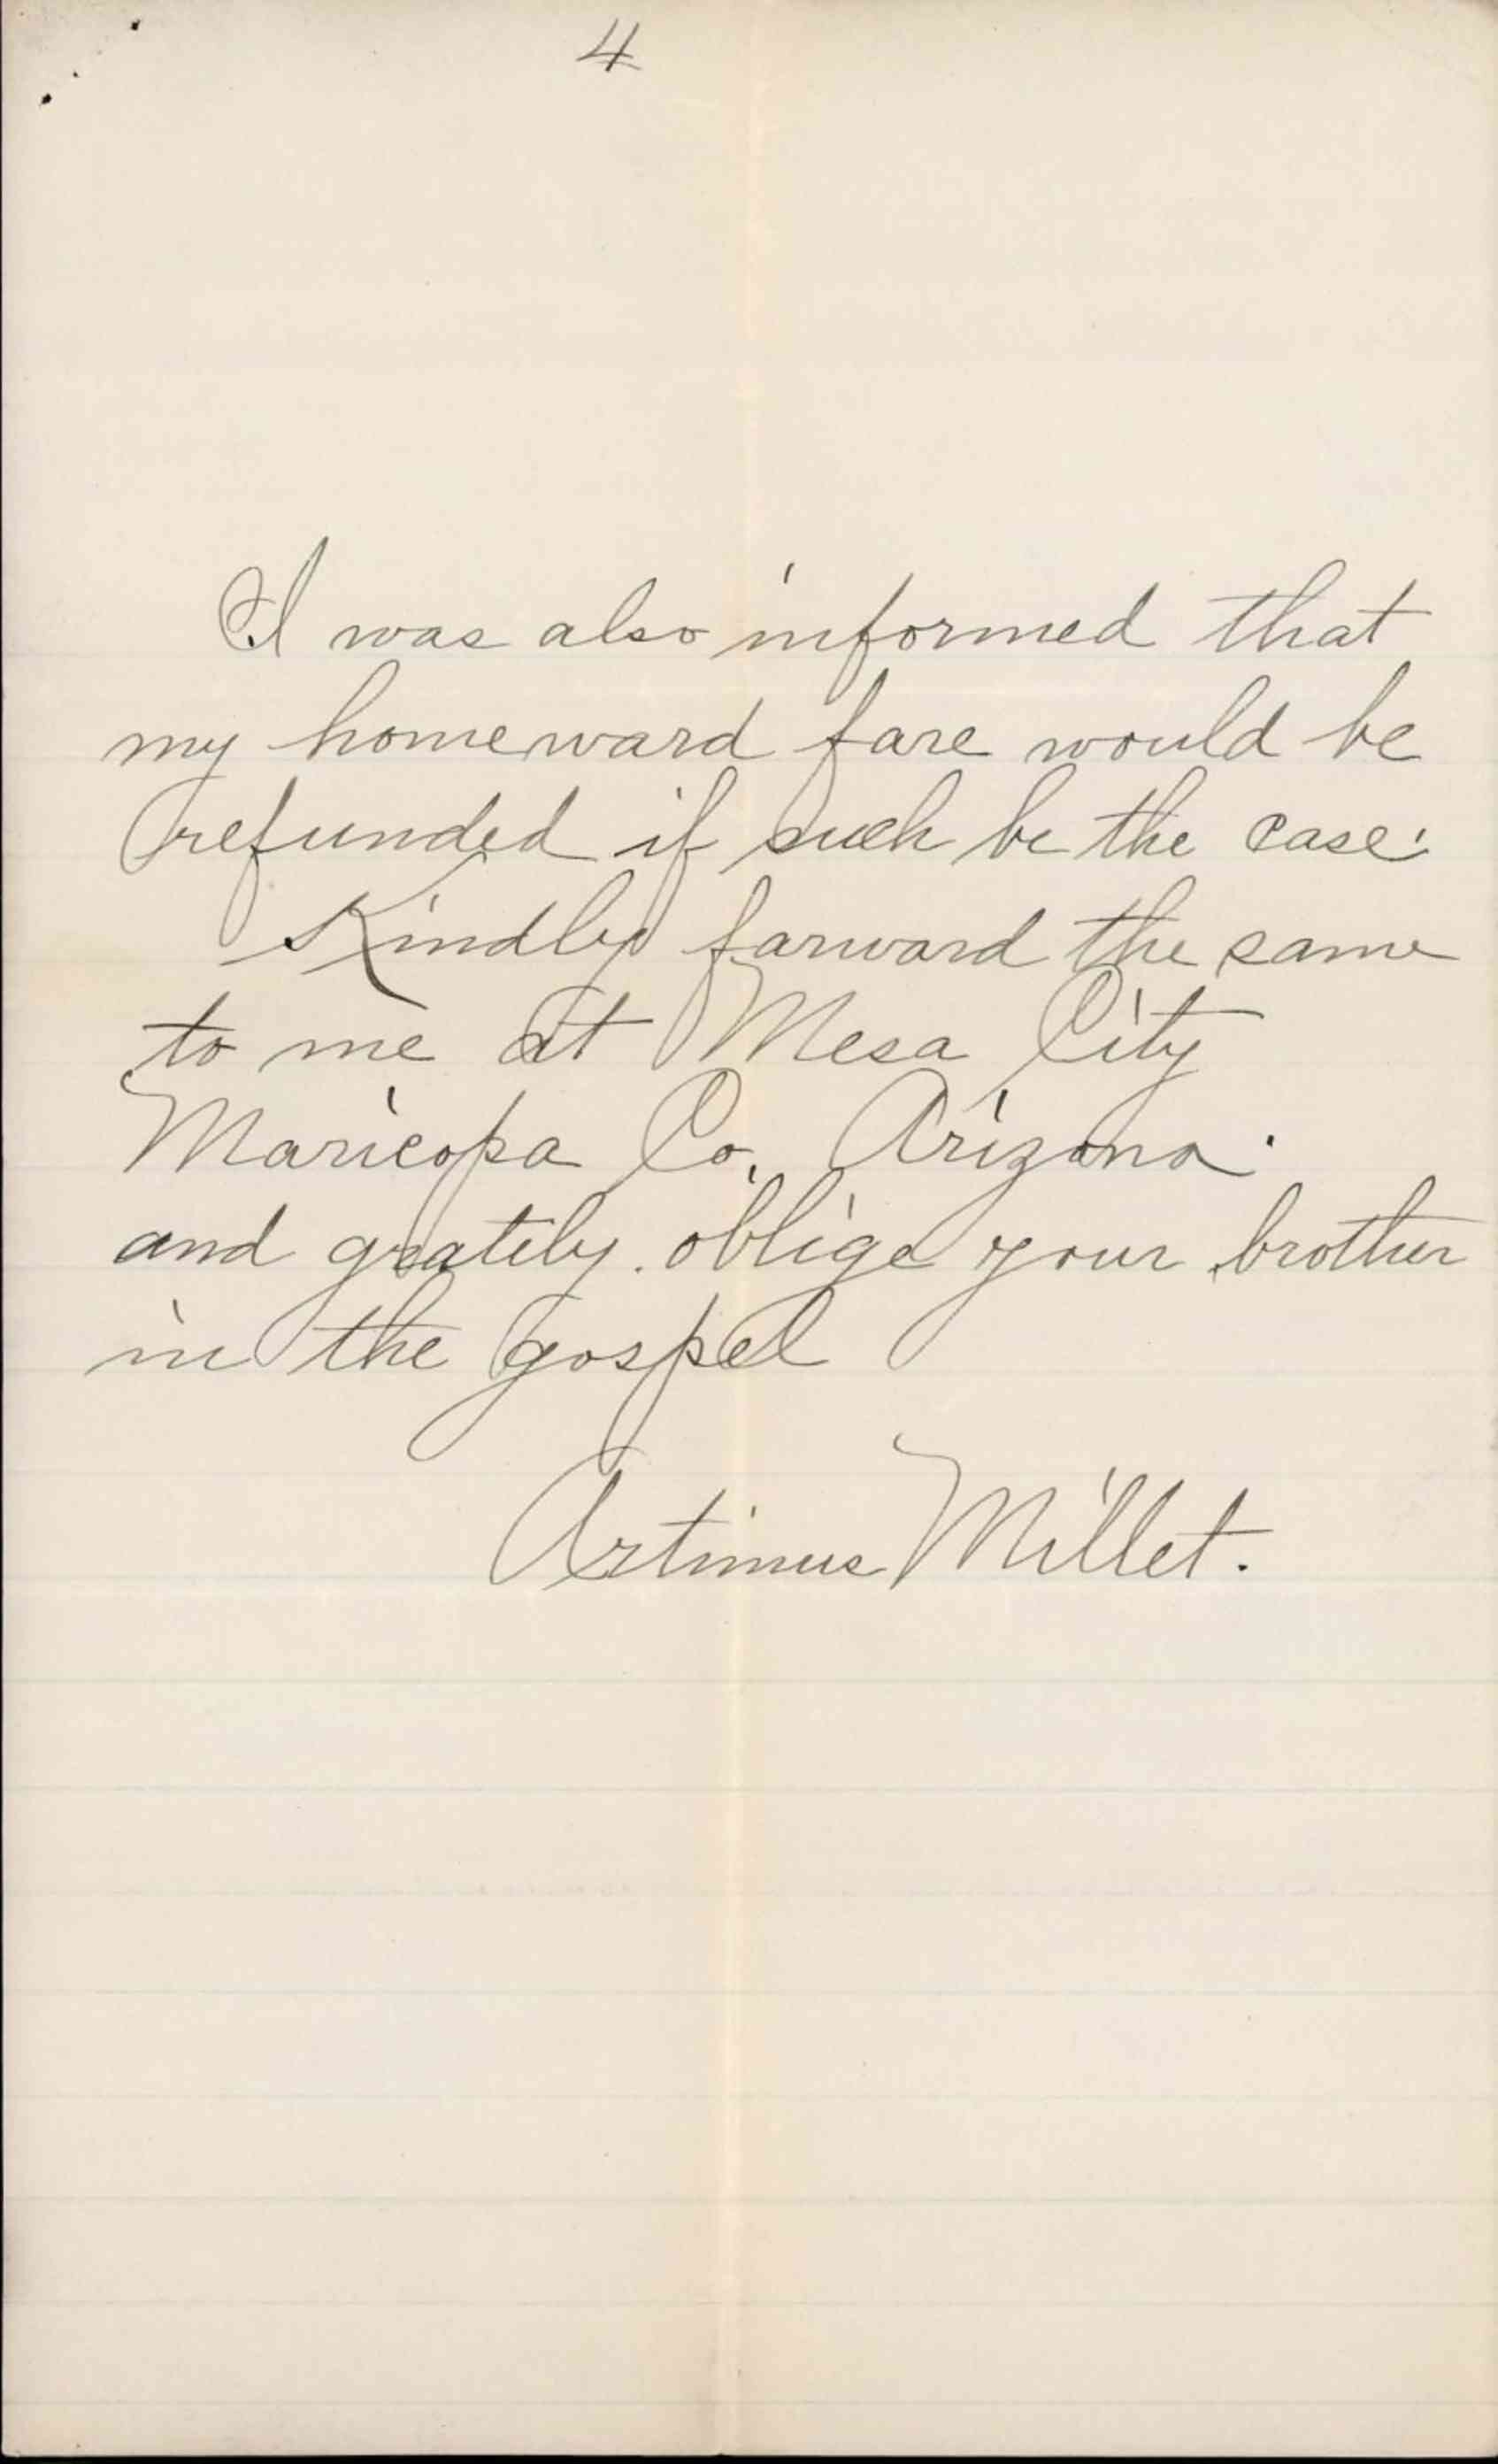 4
I was also informed that
my homeward fare would be
refunded if such be the case.
Kindly farward the same
to me at Mesa City
Maricopa Co. Arizona.
and gratily. oblige your brother
in the gospel
Artimus Millet.